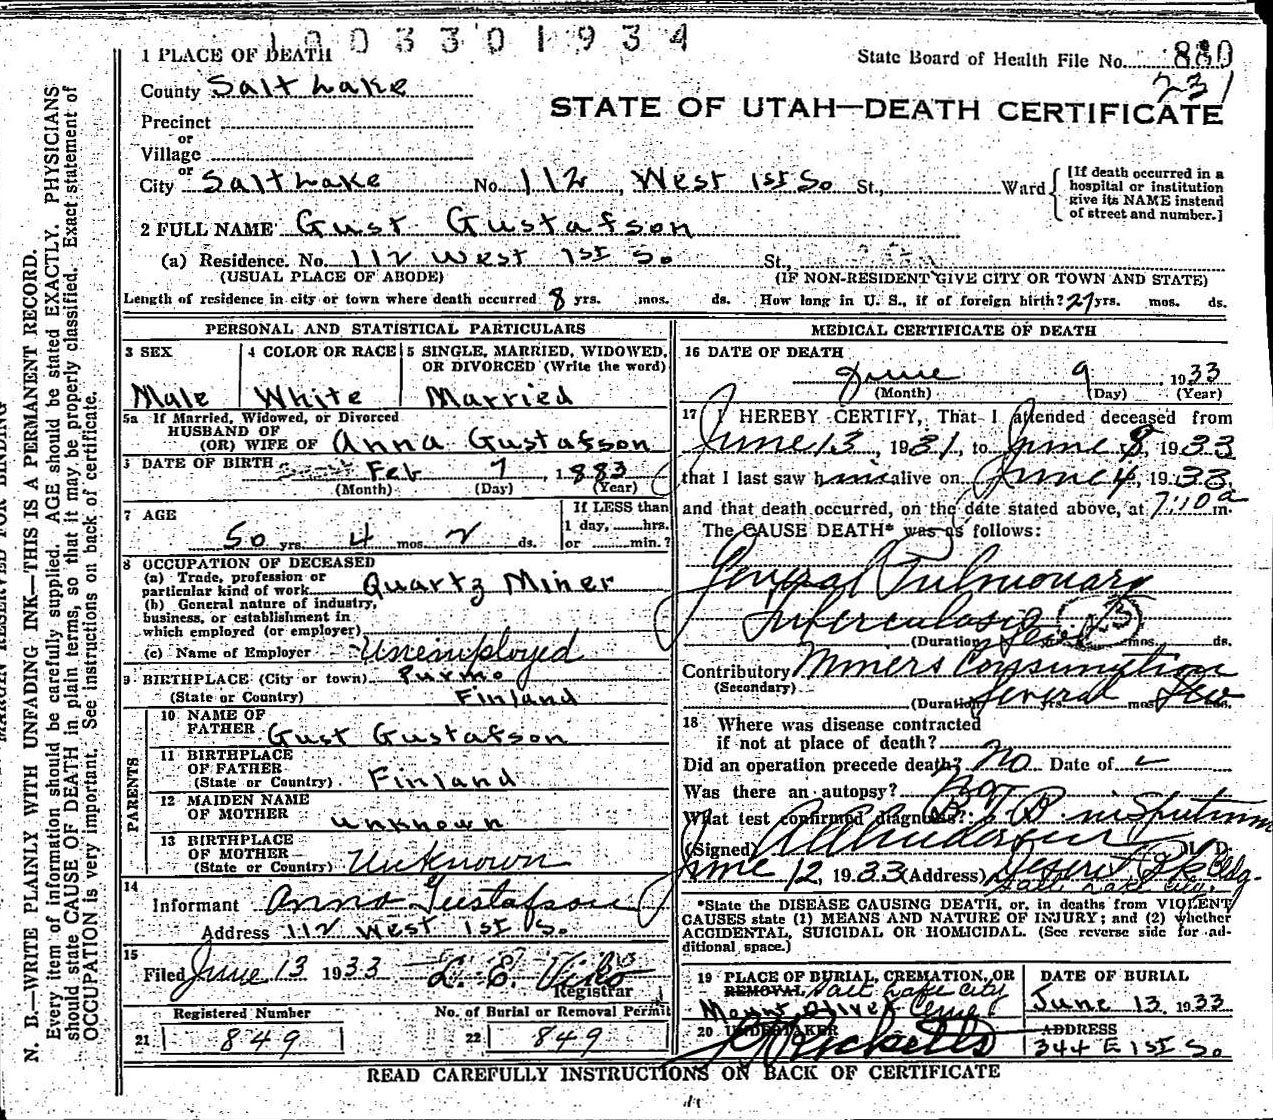 1003301934
1 PLACE OF DEATH
State Board of Health File No. 880
231
County Salt Lake
STATE OF UTAH—DEATH CERTIFICATE
Precinct
or
Village
or
City Salt Lake No. 112, West 1st So St., Ward
[If death occurred in a hospital or institution give its NAME instead of street and number.]
2 FULL NAME Gust Gustafson
(a) Residence. No. 112 West 1st So. St.,
(USUAL PLACE OF ABODE) (IF NON-RESIDENT GIVE CITY OR TOWN AND STATE)
Length of residence in city or town where death occurred 8 yrs. mos. ds. How long in U. S., if of foreign birth? 27 yrs. mos. ds.
PERSONAL AND STATISTICAL PARTICULARS
3 SEX
Male
4 COLOR OR RACE
White
5 SINGLE, MARRIED, WIDOWED, OR DIVORCED (Write the word)
Married
5a If Married, Widowed, or Divorced
HUSBAND OF
(OR) WIFE OF Anna Gustafson
DATE OF BIRTH Feb 7, 1883
(Month) (Day) (Year)
7 AGE
50 yrs. 4 mos. 2 ds.
If LESS than
1 day, hrs.
or min.?
8 OCCUPATION OF DECEASED
(a) Trade, profession or
particular kind of work Quartz Miner
(b) General nature of industry,
business, or establishment in
which employed (or employer)
(c) Name of Employer Unemployed
9 BIRTHPLACE (City or town) Purmo
(State or Country) Finland
PARENTS
10 NAME OF
FATHER Gust Gustafson
11 BIRTHPLACE
OF FATHER
(State or Country) Finland
12 MAIDEN NAME
OF MOTHER unknown
13 BIRTHPLACE
OF MOTHER
(State or Country) Unknown
14
Informant Anna Gustafson
Address 112 West 1st So.
15
Filed June 13 1933 L. E. Viko
Registrar
Registered Number
21 849
No. of Burial or Removal Permit
22 849
MEDICAL CERTIFICATE OF DEATH
16 DATE OF DEATH
June 9, 1933
(Month) (Day) (Year)
17 I HEREBY CERTIFY, That I attended deceased from
June 13, 1931, to June 8, 1933
that I last saw him alive on June 4, 1933,
and that death occurred, on the date stated above, at 7:10 a m.
The CAUSE DEATH* was as follows:
General Pulmonary
Tuberculosis 23
(Duration) mos. ds.
Contributory Miners Consumption
(Secondary)
(Duration) Several yrs. mos. ds.
18 Where was disease contracted
if not at place of death?
Did an operation precede death? No Date of
Was there an autopsy?
What test confirmed diagnosis? T. B. in Sputum
(Signed) M. D.
June 12, 1933 (Address) Deseret Bk Bldg.
Salt Lake City.
*State the DISEASE CAUSING DEATH, or, in deaths from VIOLENT
CAUSES state (1) MEANS AND NATURE OF INJURY; and (2) whether
ACCIDENTAL, SUICIDAL OR HOMICIDAL. (See reverse side for ad-
ditional space.)
19 PLACE OF BURIAL, CREMATION, OR
REMOVAL Salt Lake City
Mount Olivet Cemet
DATE OF BURIAL
June 13, 1933
20 UNDERTAKER
Ricketts
ADDRESS
344 E 1st So
READ CAREFULLY INSTRUCTIONS ON BACK OF CERTIFICATE
MARGIN RESERVED FOR BINDING
N. B.—WRITE PLAINLY WITH UNFADING INK—THIS IS A PERMANENT RECORD.
Every item of information should be carefully supplied. AGE should be stated EXACTLY. PHYSICIANS
should state CAUSE OF DEATH in plain terms, so that it may be properly classified. Exact statement of
OCCUPATION is very important. See instructions on back of certificate.